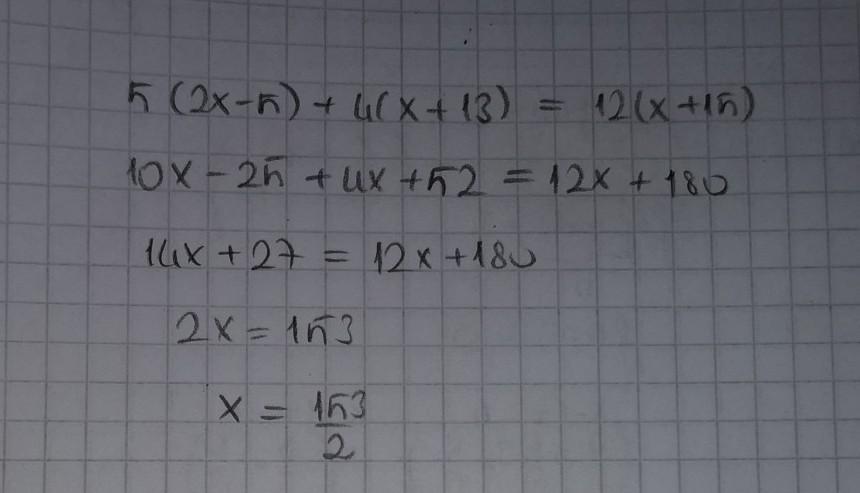 5(2x-5)+4(x+13) = 12(x+15)
10x-25+4x+52 = 12x+180
14x+27 = 12x+180
2x = 153
x = 153/2